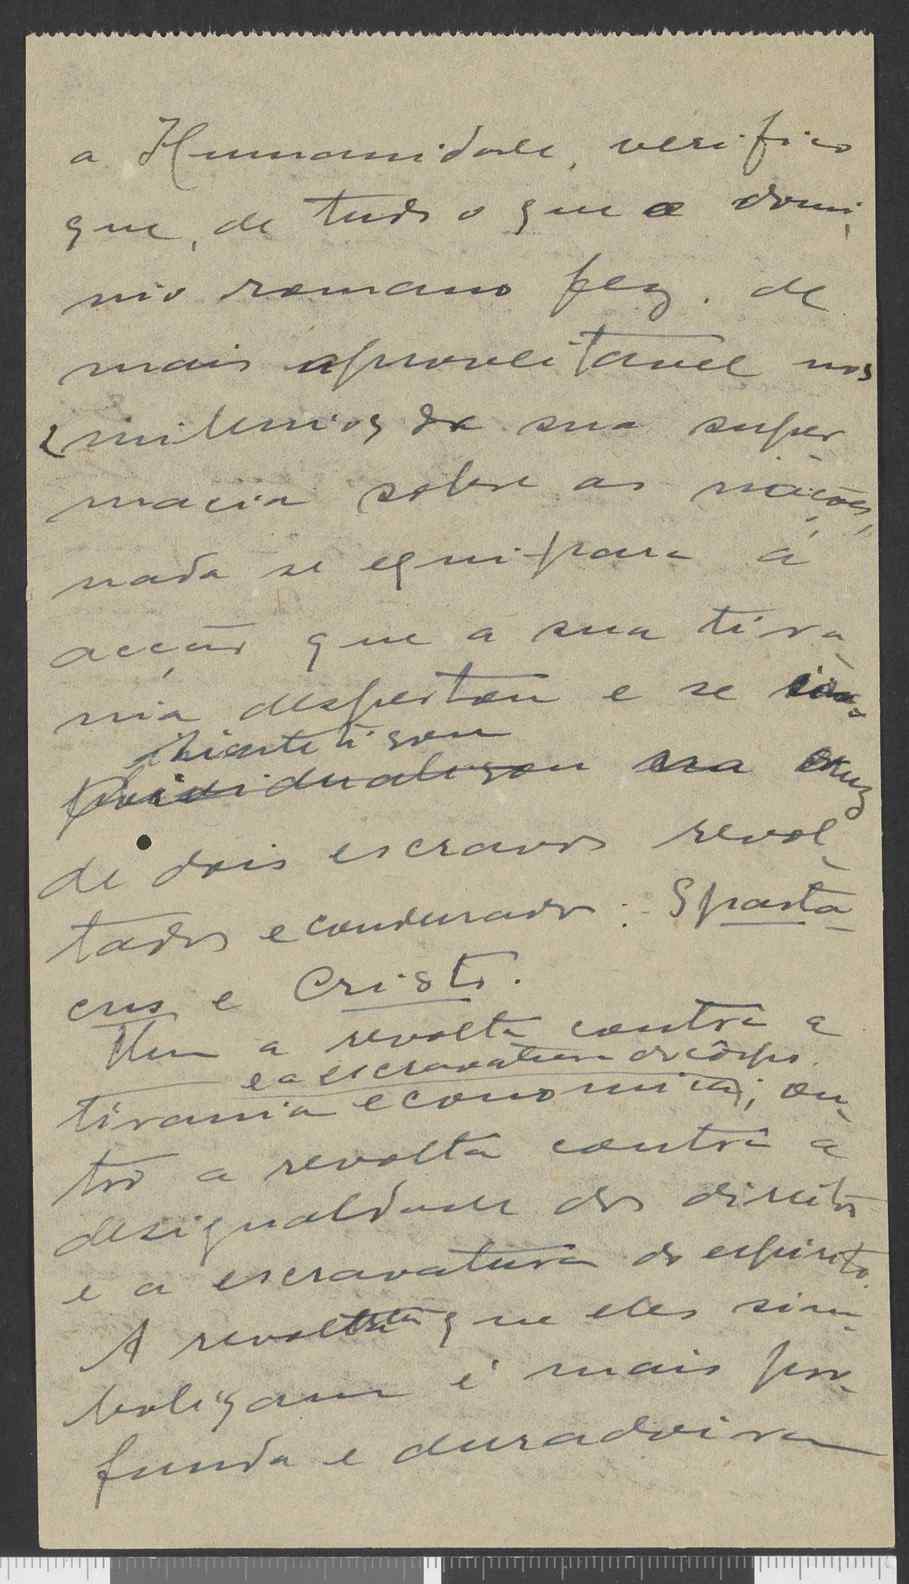 a Humanidade, verifico
que, de tudo o que o domi-
nio romano fez de
mais aproveitavel nos
2 milenios da sua super-
macia sobre as nações,
nada se equipara á
acção que a sua tira-
nia despertou e se
na cruz
de dois escravos revol-
tados e condenados: Sparta-
cus e Cristo.
Um a revolta contra a
e a escravatura do côrpo
tirania economica; ou-
tro a revolta contra a
desigualdade dos direitos
e a escravatura do espirito.
A revolta que eles sim-
bolizam é mais pro-
funda e duradoira